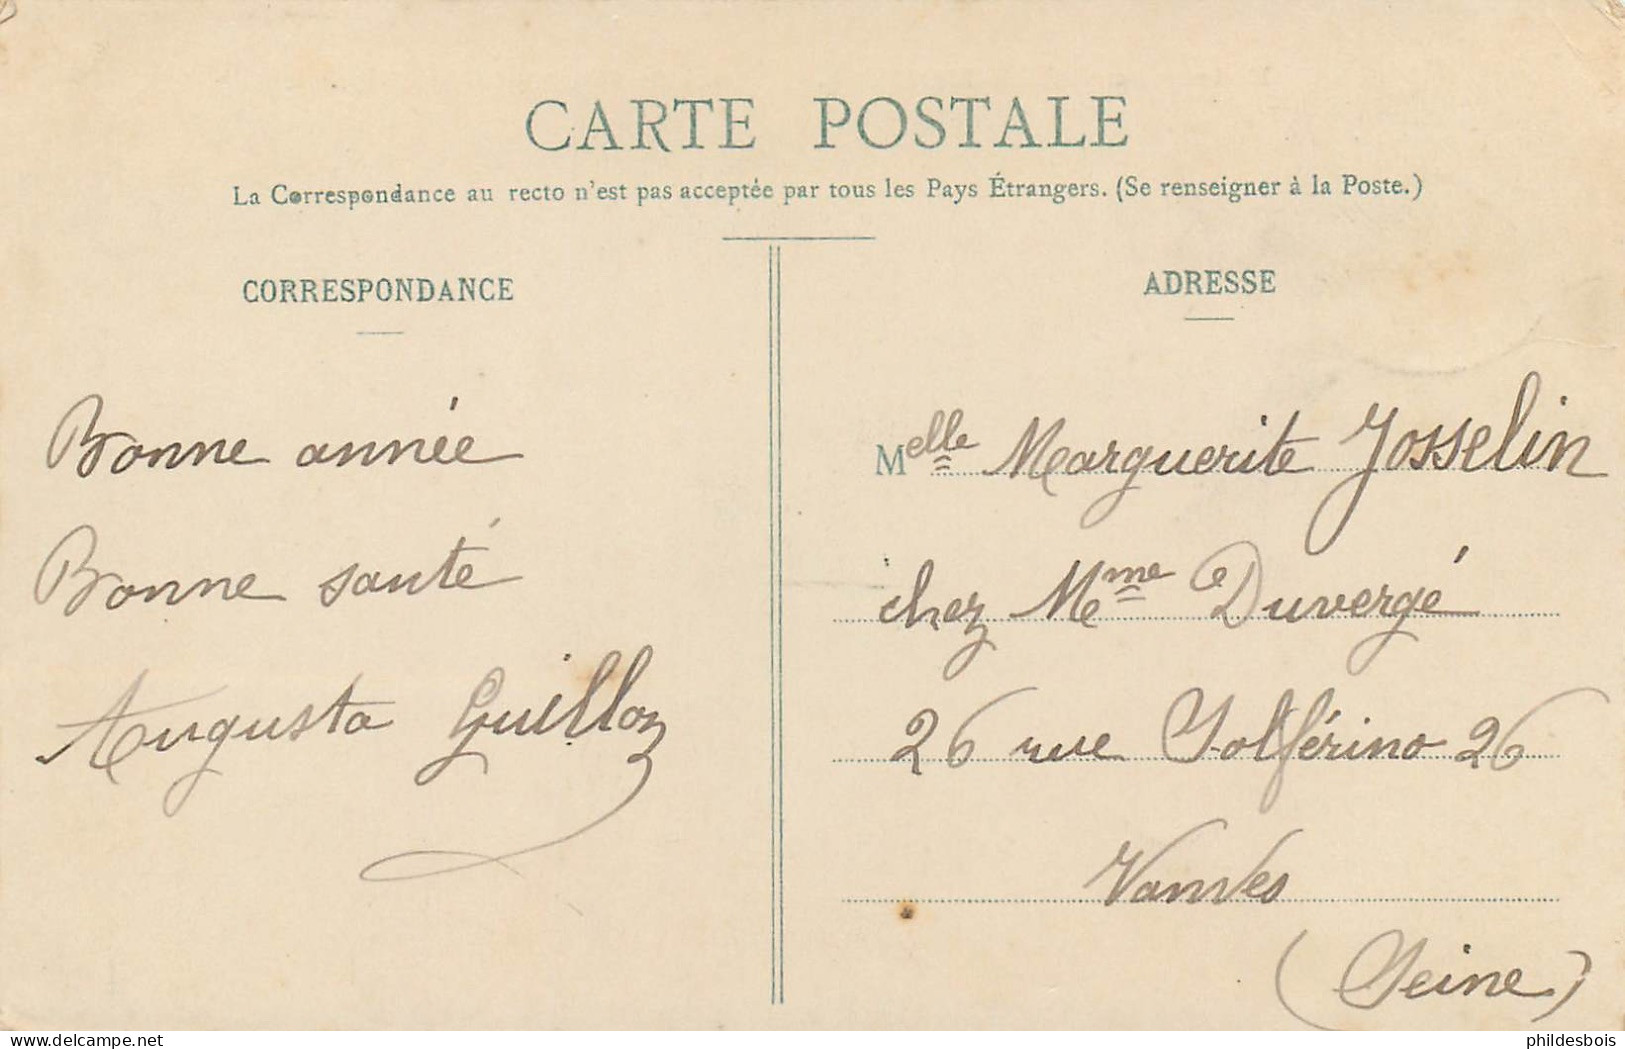 CARTE POSTALE
La Correspondance au recto n'est pas acceptée par tous les Pays Étrangers. (Se renseigner à la Poste.)
CORRESPONDANCE
Bonne année
Bonne santé
Augusta Guilloz
ADRESSE
Melle Marguerite Josselin
chez Mme Duvergé
26 rue Solférino 26
Vanves
(Seine)
delcampe.net
phildesbois